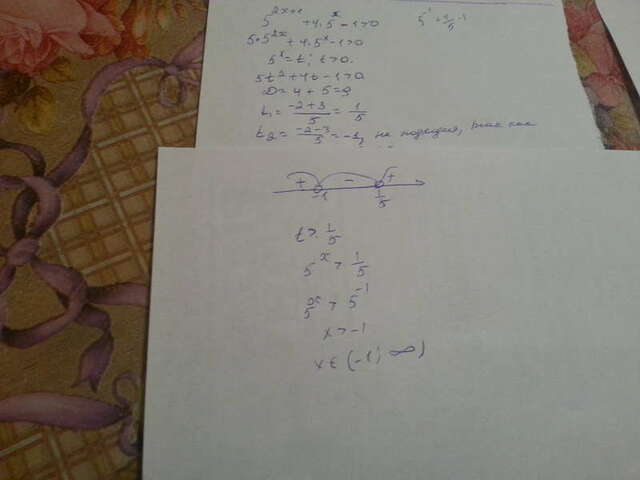 5^{2x+1} + 4·5^x - 1 > 0
5·5^{2x} + 4·5^x - 1 > 0
5^x = t; t > 0.
5t^2 + 4t - 1 > 0
D = 4 + 5 = 9
t_1 = \frac{-2+3}{5} = \frac{1}{5}
t_2 = \frac{-2-3}{5} = -1, не подходит, так как
+ - +
-1 \frac{1}{5}
t > \frac{1}{5}
5^x > \frac{1}{5}
5^x > 5^{-1}
x > -1
x ∈ (-1; ∞)